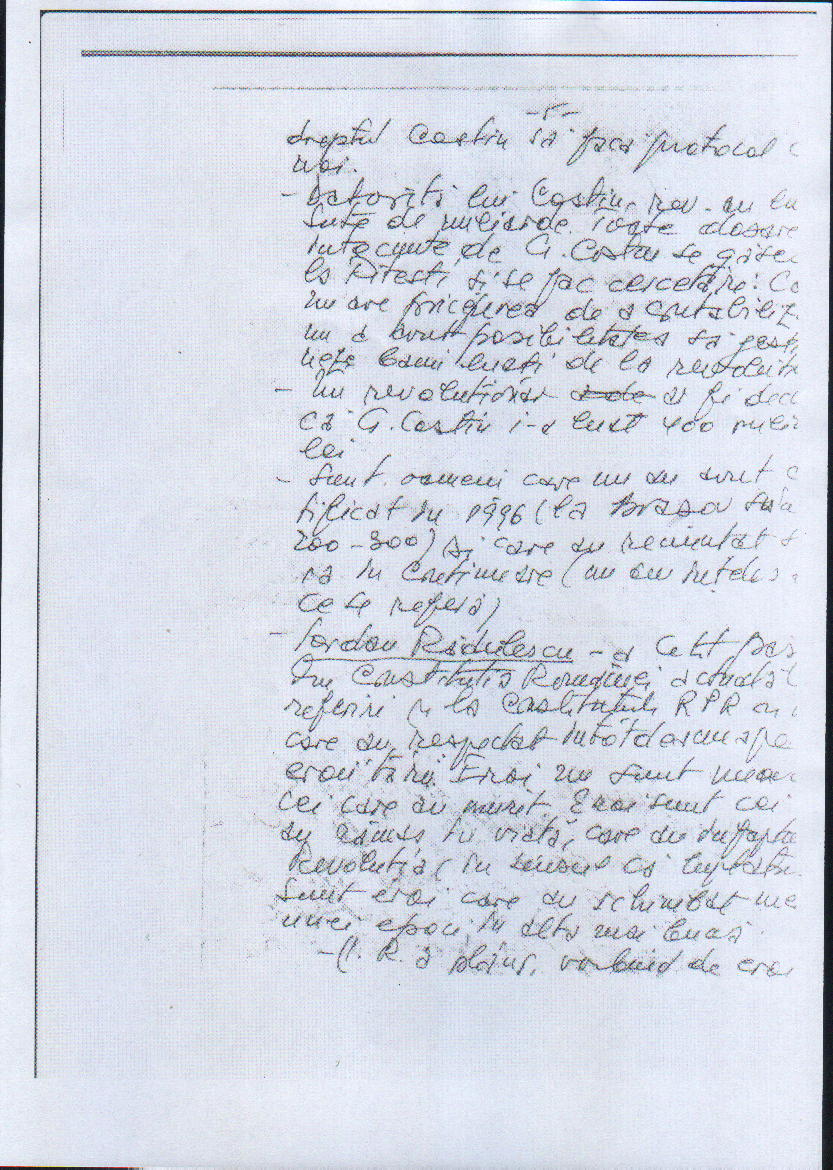 -5-
dreptul Costin să facă protocol c
noi.
- Datorită lui Costin, rev. au lu
sute de miliarde. Toate dosare
întocmite de G. Costin se găsec
la Pitești și se fac cercetări: Co
nu are priceperea de a contabiliz
nu a avut posibilitatea să gesti
neze banii luați de la revoluți
- Un revolutionar a de ar fi decl
că G. Costin i-a luat 400 mili
lei
- Sunt oameni care nu au avut c
tificat în 1996 (la Brasov sun
200-300) și care au renuntat
ră în continuare (nu am înțeles
ce se referă)
- Iordan Rădulescu - a citit pas
din Constituția României actuală
referiri și la Constitutii RPR
care au respectat întotdeauna pe
eroii țării. Eroi nu sunt numai
cei care au murit. Eroi sunt cei
au rămas în viată, care au înfăptu
Revoluția, în sensul că luptătu
sunt eroi care au schimbat
unei epoci în alta mai bună.
- (I. R. a plâns, vorbind de eroi